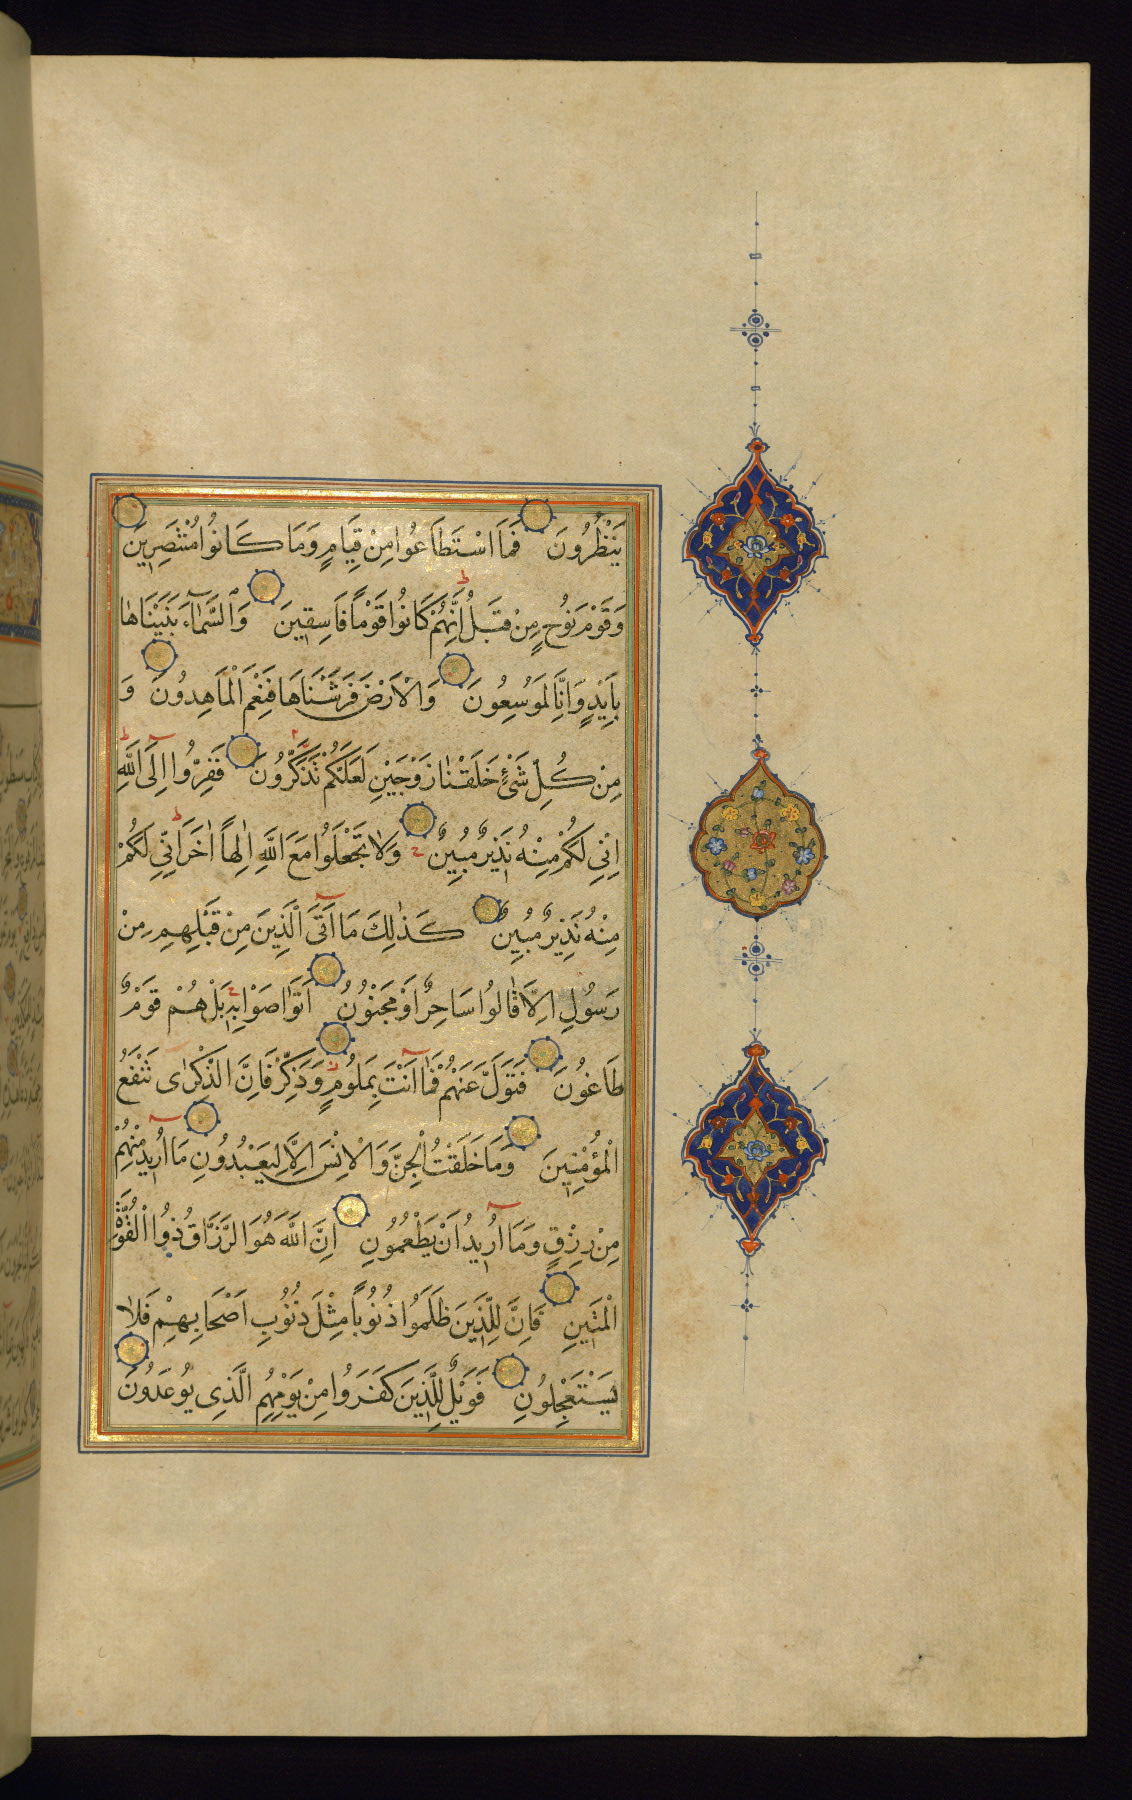 يَنْظُرُونَ فَمَا اسْتَطَاعُوا مِنْ قِيَامٍ وَمَا كَانُوا مُنْتَصِرِينَ
وَقَوْمَ نُوحٍ مِنْ قَبْلُ اِنَّهُمْ كَانُوا قَوْمًا فَاسِقِينَ وَالسَّمَاءَ بَنَيْنَاهَا
بِاَيْدٍ وَاِنَّا لَمُوسِعُونَ وَالْاَرْضَ فَرَشْنَاهَا فَنِعْمَ الْمَاهِدُونَ وَ
مِنْ كُلِّ شَىْءٍ خَلَقْنَا زَوْجَيْنِ لَعَلَّكُمْ تَذَكَّرُونَ فَفِرُّوا اِلَى اللَّهِ
اِنِّي لَكُمْ مِنْهُ نَذِيرٌ مُبِينٌ وَلَا تَجْعَلُوا مَعَ اللَّهِ اِلٰهاً اٰخَرَ اِنِّي لَكُمْ
مِنْهُ نَذِيرٌ مُبِينٌ كَذٰلِكَ مَا اَتَى الَّذِينَ مِنْ قَبْلِهِمْ مِنْ
رَسُولٍ اِلَّا قَالُوا سَاحِرٌ اَوْ مَجْنُونٌ اَتَوَاصَوْا بِهِ بَلْ هُمْ قَوْمٌ
طَاغُونَ فَتَوَلَّ عَنْهُمْ فَمَا اَنْتَ بِمَلُومٍ وَذَكِّرْ فَاِنَّ الذِّكْرٰى تَنْفَعُ
الْمُؤْمِنِينَ وَمَا خَلَقْتُ الْجِنَّ وَالْاِنْسَ اِلَّا لِيَعْبُدُونِ مَا اُرِيدُ مِنْهُمْ
مِنْ رِزْقٍ وَمَا اُرِيدُ اَنْ يُطْعِمُونِ اِنَّ اللَّهَ هُوَ الرَّزَّاقُ ذُوا الْقُوَّةِ
الْمَتِينِ فَاِنَّ لِلَّذِينَ ظَلَمُوا ذَنُوباً مِثْلَ ذَنُوبِ اَصْحَابِهِمْ فَلَا
يَسْتَعْجِلُونِ فَوَيْلٌ لِلَّذِينَ كَفَرُوا مِنْ يَوْمِهِمُ الَّذِى يُوعَدُونَ